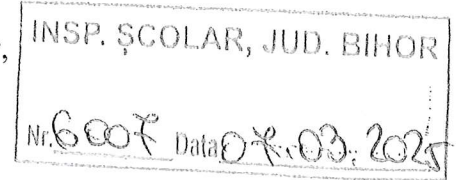 INSP. ȘCOLAR, JUD. BIHOR
Nr. 6007 Data 07.03.2025